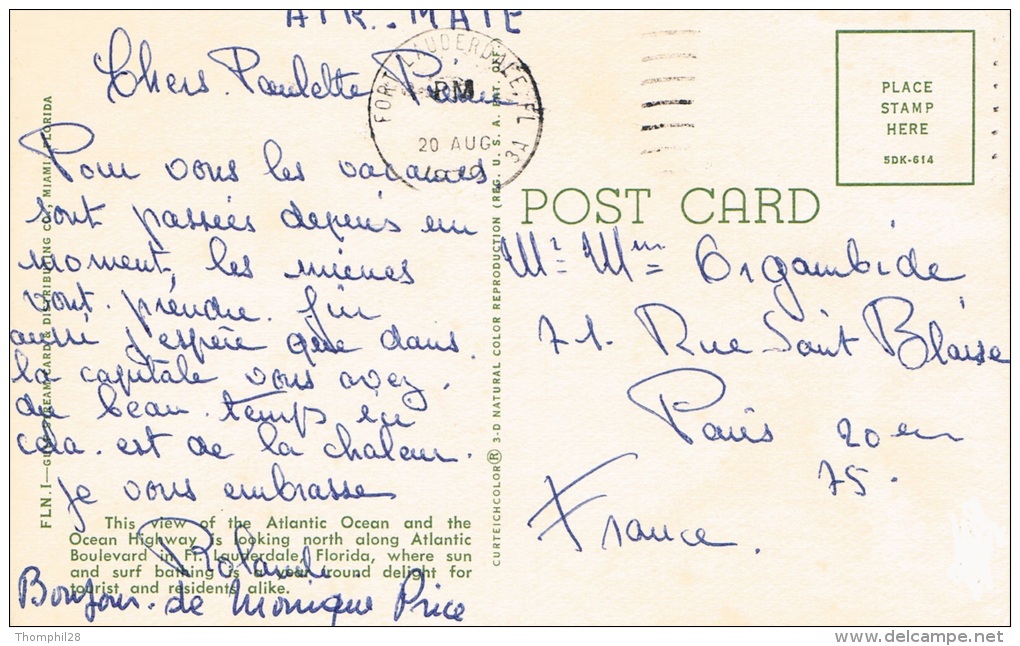 AIR - MAIL
Chers Paulette Pierre
Pour vous les vacances
sont passées depuis un
moment, les mienes
vont prendre fin
aussi j'espère que dans
la capitale vous avez
du beau temps ici
cela est de la chaleur.
je vous embrasse
Rolande.
Bonjour de Monique Price
FORT LAUDERDALE, FL
PM
20 AUG
PLACE
STAMP
HERE
5DK-614
POST CARD
Mr Mme Orgambide
71. Rue Saint Blaise
Paris 20 em
75.
France.
FLN.1—GULF STREAM CARD & DISTRIBUTING CO., MIAMI, FLORIDA
CURTEICHCOLOR® 3-D NATURAL COLOR REPRODUCTION (REG. U.S.A. PAT. OFF.)
This view of the Atlantic Ocean and the
Ocean Highway is looking north along Atlantic
Boulevard in Ft. Lauderdale, Florida, where sun
and surf bathing is a year round delight for
tourist and residents alike.
Thomphil28
www.delcampe.net